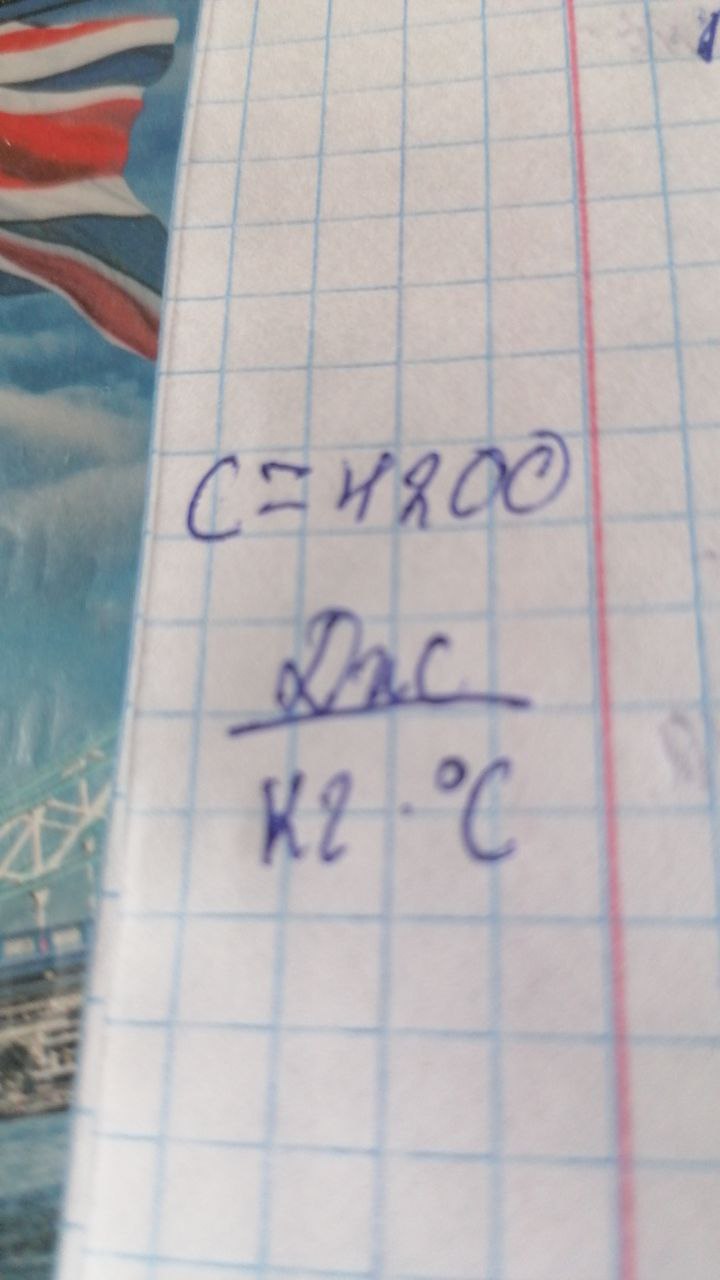 C = 4200
Дж
кг · °C